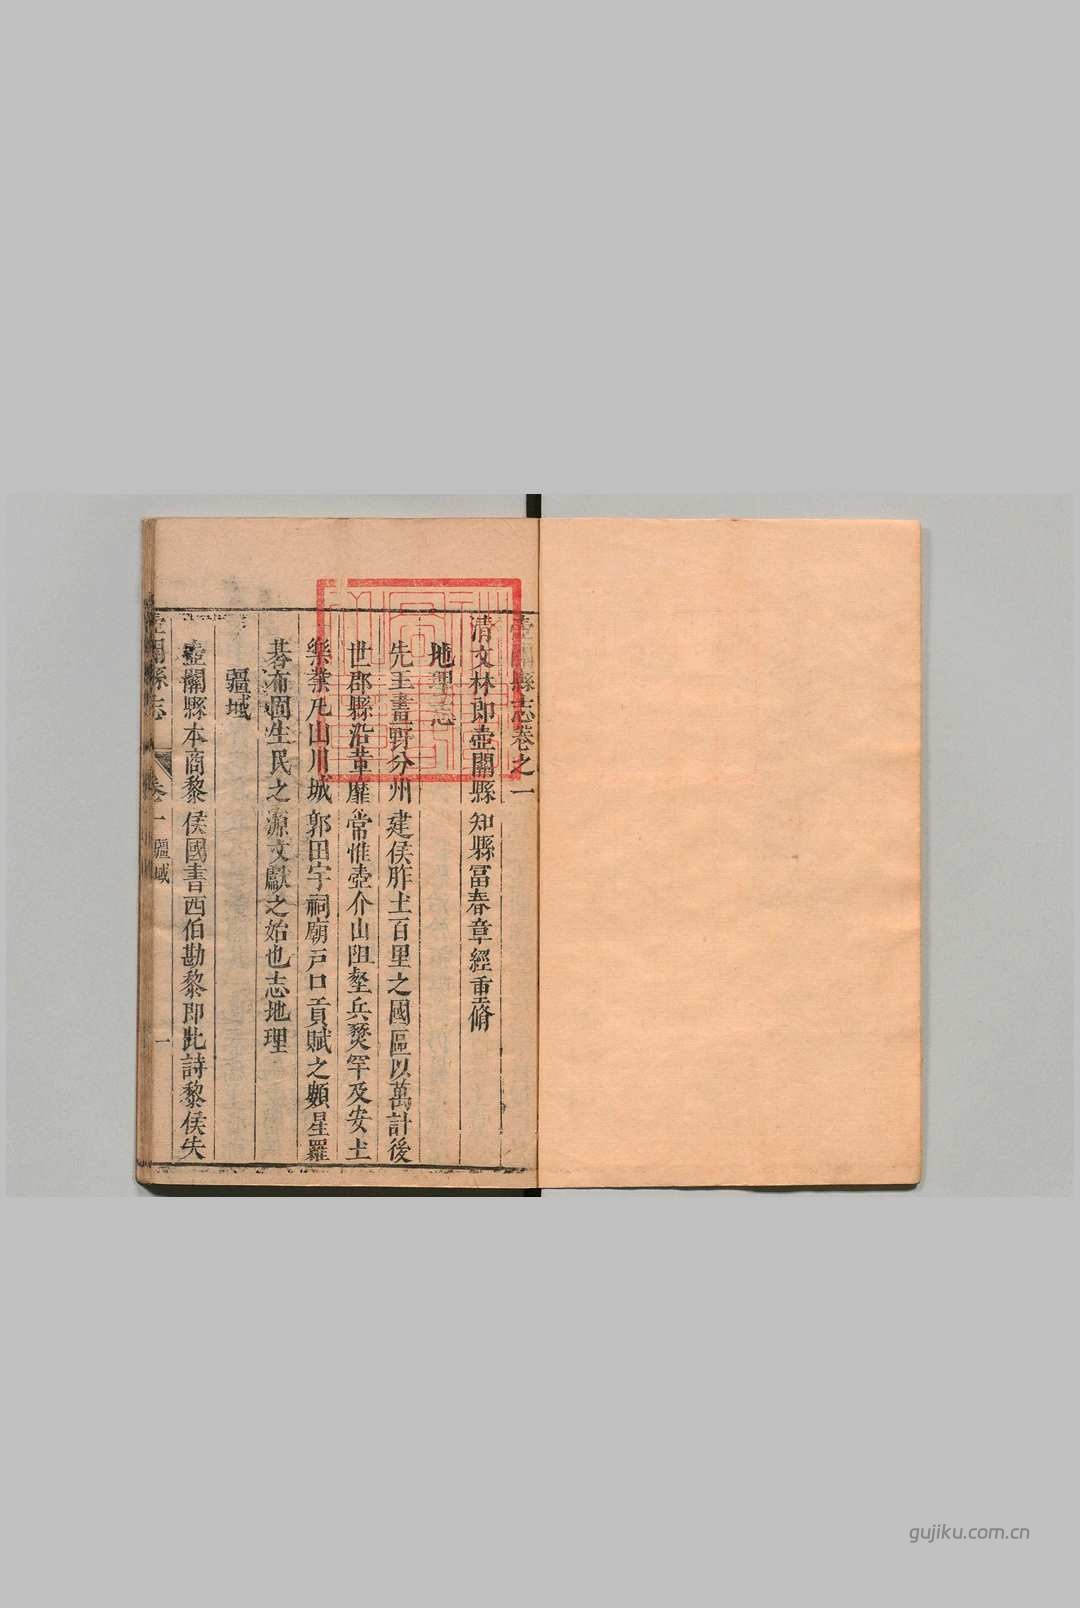 壺關縣志卷之一
清文林郎壺關縣知縣富春章經重脩
地理志
先王畫野分州建侯胙土百里之國區以萬計後
世郡縣沿革靡常惟壺介山阻壑兵燹罕及安土
樂業凡山川城郭田宇祠廟戸口貢賦之類星羅
碁布固生民之源文獻之始也志地理
疆域
壺關縣本商黎侯國書西伯勘黎即此詩黎侯失
壺關縣志 卷一 疆域 一
gujiku.com.cn